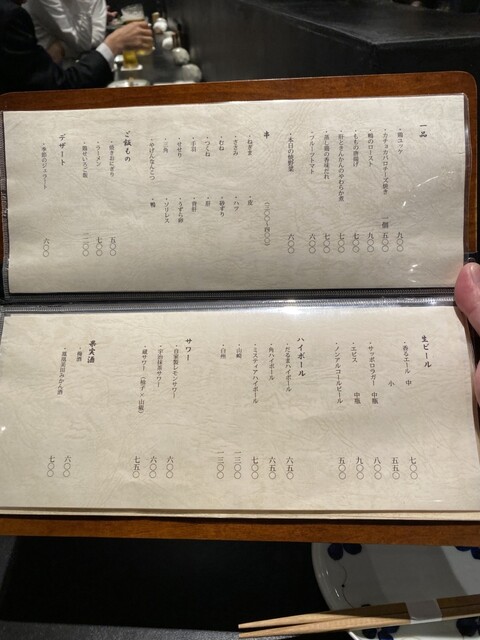 一品
・鶏ユッケ 九〇〇
・カチョカバロチーズ焼き 一個 五〇〇
・鴨のロースト 九〇〇
・ももの唐揚げ 七〇〇
・肝ときんかんのやわらか煮 七〇〇
・蒸し鶏の香味だれ 七〇〇
・フルーツトマト 六〇〇
・本日の焼野菜 六〇〇
串 (二〇〇~四〇〇)
・ねぎま ・皮
・ささみ ・ハツ
・むね ・砂ずり
・つくね ・肝
・手羽 ・背肝
・せせり ・うずら卵
・三角 ・ソリレス
・やげんなんこつ ・鴨
ご飯もの
・焼きおにぎり 五〇〇
・ラーメン 七〇〇
・鶏せいろご飯
デザート
・季節のジェラート 六〇〇
生ビール
・香るエール 中 七〇〇
小 五五〇
・サッポロラガー 中瓶 八〇〇
・エビス 中瓶 九〇〇
・ノンアルコールビール 五〇〇
ハイボール
・だるまハイボール 六五〇
・角ハイボール 六五〇
・ミスティアハイボール 七〇〇
・山崎 一三〇〇
・白州 一三〇〇
サワー
・自家製レモンサワー 六〇〇
・宇治抹茶サワー 六〇〇
・蔵サワー (柚子×山椒) 七五〇
果実酒
・梅酒 六〇〇
・鳳凰美田みかん酒 七〇〇